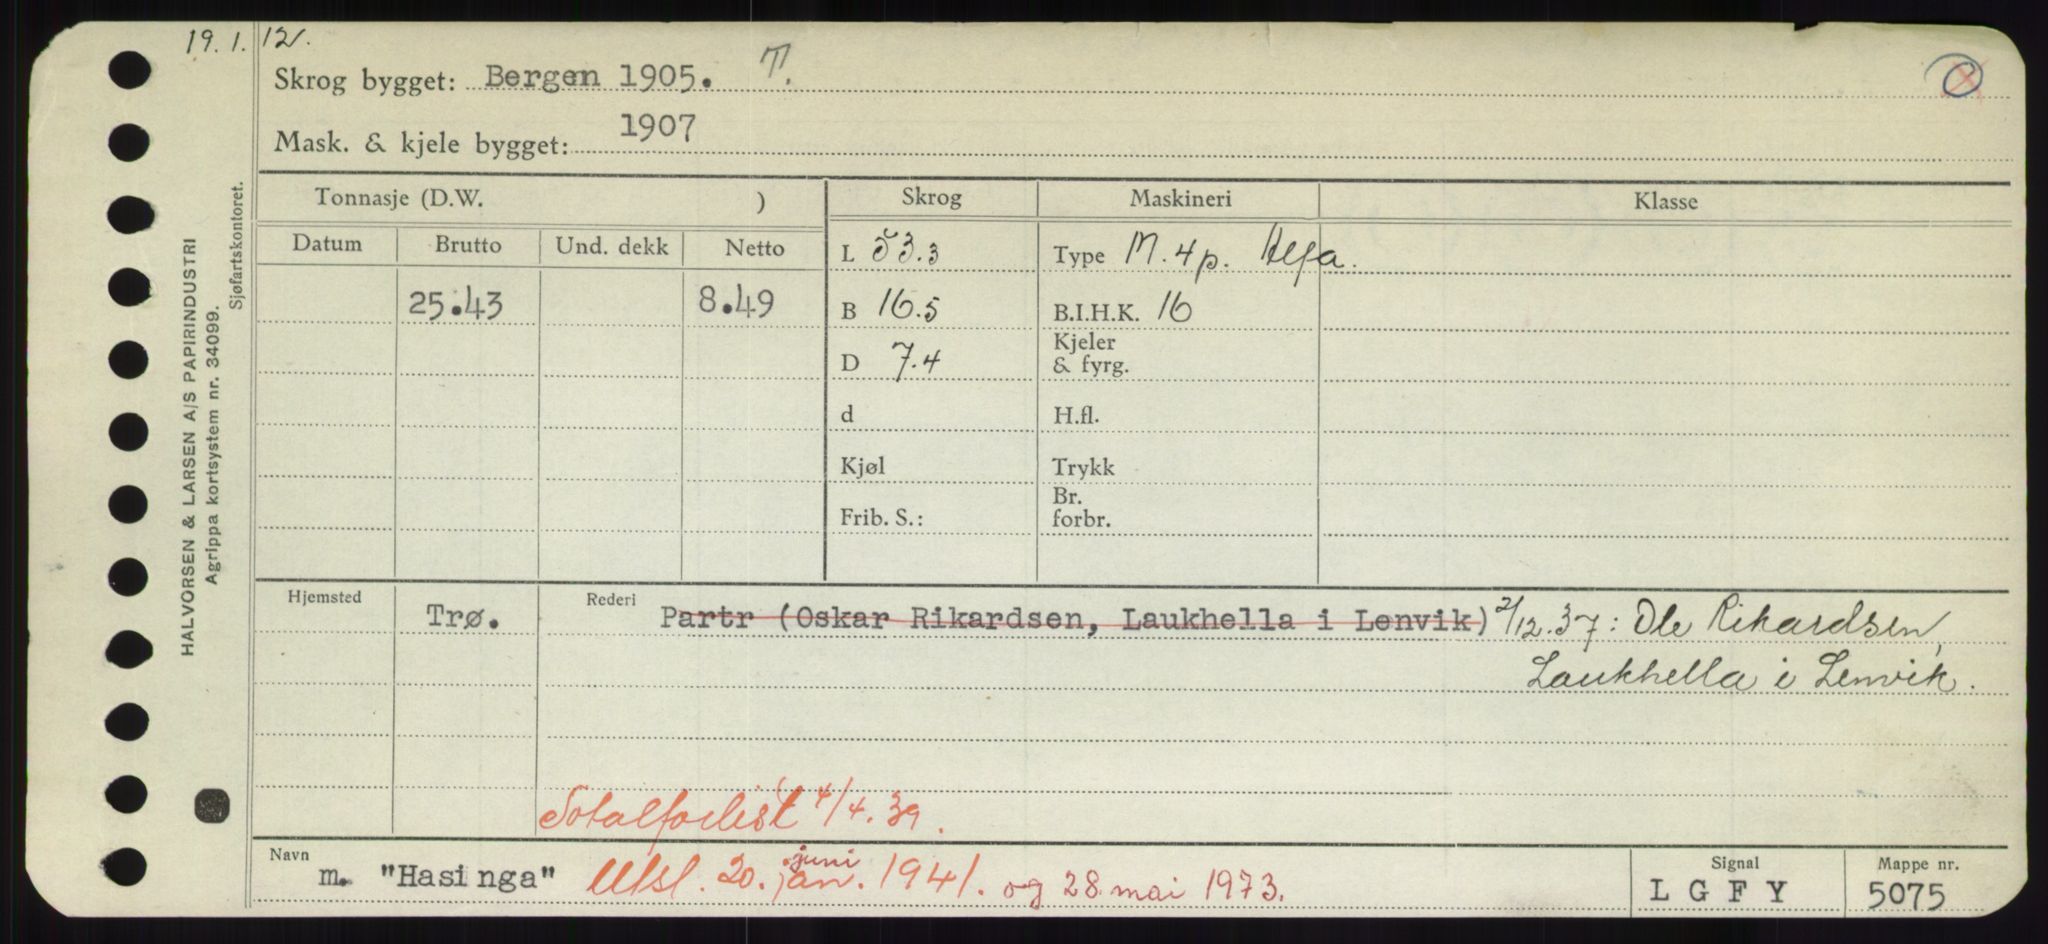 19. 1. 12.
Skrog bygget: Bergen 1905. T.
Mask. & kjele bygget: 1907
HALVORSEN & LARSEN A/S PAPIRINDUSTRI
Agrippa kortsystem nr. 34099.
Sjøfartskontoret.
Tonnasje (D.W. ) Skrog Maskineri Klasse
Datum Brutto Und. dekk Netto L 53.3 Type M. 4 p. Alfa.
25.43 8.49 B 16.5 B.I.H.K. 16
D 7.4 Kjeler
& fyrg.
d H.fl.
Kjøl Trykk
Frib. S.: Br.
forbr.
Hjemsted Trø. Rederi Partr (Oskar Rikardsen, Laukhella i Lenvik) 2/12.37: Ole Rikardsen,
Laukhella i Lenvik.
Totalforlist 4/4.39.
Navn m. "Hasinga" Utsl. 20. jan. juni 1941. og 28 mai 1973. Signal L G F Y Mappe nr. 5075